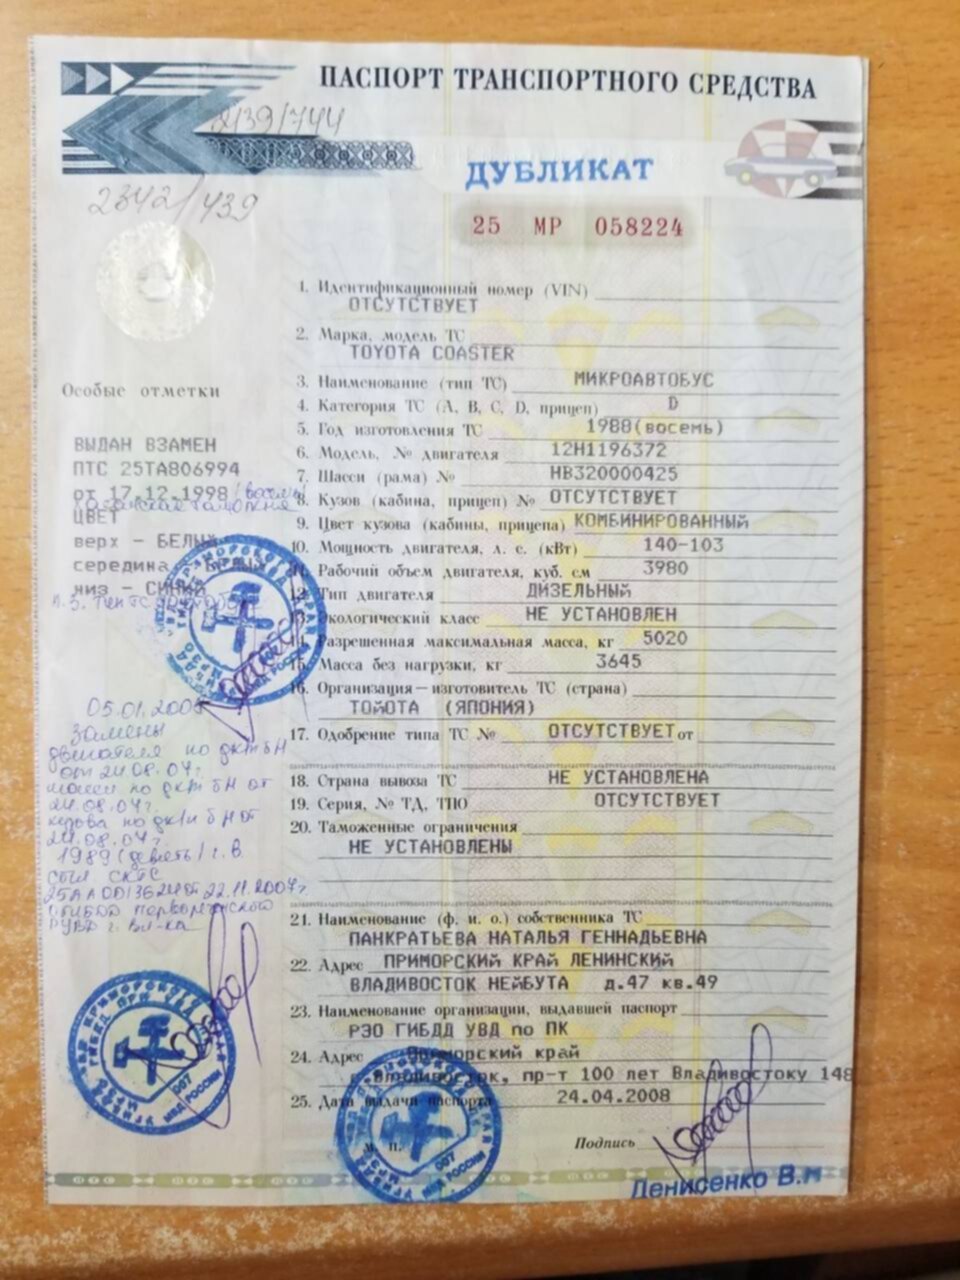 ПАСПОРТ ТРАНСПОРТНОГО СРЕДСТВА
2139/744
ДУБЛИКАТ
2342/439
25 МР 058224
1. Идентификационный номер (VIN)
ОТСУТСТВУЕТ
2. Марка, модель ТС
TOYOTA COASTER
3. Наименование (тип ТС) МИКРОАВТОБУС
4. Категория ТС (A, B, C, D, прицеп) D
5. Год изготовления ТС 1988(восемь)
6. Модель, № двигателя 12H1196372
7. Шасси (рама) № HB320000425
8. Кузов (кабина, прицеп) № ОТСУТСТВУЕТ
9. Цвет кузова (кабины, прицепа) КОМБИНИРОВАННЫЙ
10. Мощность двигателя, л. с. (кВт) 140-103
11. Рабочий объем двигателя, куб. см 3980
12. Тип двигателя ДИЗЕЛЬНЫЙ
13. Экологический класс НЕ УСТАНОВЛЕН
14. Разрешенная максимальная масса, кг 5020
15. Масса без нагрузки, кг 3645
16. Организация – изготовитель ТС (страна)
ТОЙОТА (ЯПОНИЯ)
17. Одобрение типа ТС № ОТСУТСТВУЕТ от
18. Страна вывоза ТС НЕ УСТАНОВЛЕНА
19. Серия, № ТД, ТПО ОТСУТСТВУЕТ
20. Таможенные ограничения
НЕ УСТАНОВЛЕНЫ
21. Наименование (ф. и. о.) собственника ТС
ПАНКРАТЬЕВА НАТАЛЬЯ ГЕННАДЬЕВНА
22. Адрес ПРИМОРСКИЙ КРАЙ ЛЕНИНСКИЙ
ВЛАДИВОСТОК НЕЙБУТА д.47 кв.49
23. Наименование организации, выдавшей паспорт
РЭО ГИБДД УВД по ПК
24. Адрес Приморский край
Владивосток, пр-т 100 лет Владивостоку 148
25. Дата выдачи паспорта 24.04.2008
М. П.
Подпись
Денисенко В.Н
Особые отметки
ВЫДАН ВЗАМЕН
ПТС 25ТА806994
от 17.12.1998 (восемь)
таможня
ЦВЕТ
верх - БЕЛЫЙ
середина -
низ - СИНИЙ
п.3. Тип ТС автобус
05.01.2008
Замены
двигателя по дкт бН
от 24.08.07г.
шасси по дкт бН от
24.08.07г.
кузова по дкт бН от
24.08.07г.
1989 (девять) г. в.
СКТС
25АА001362 от 22.11.2007г
ОГИБДД Первореченского
РУВД г. Вл-ка
007
МВД РОССИИ
007
МВД РОССИИ
007
МВД РОССИИ